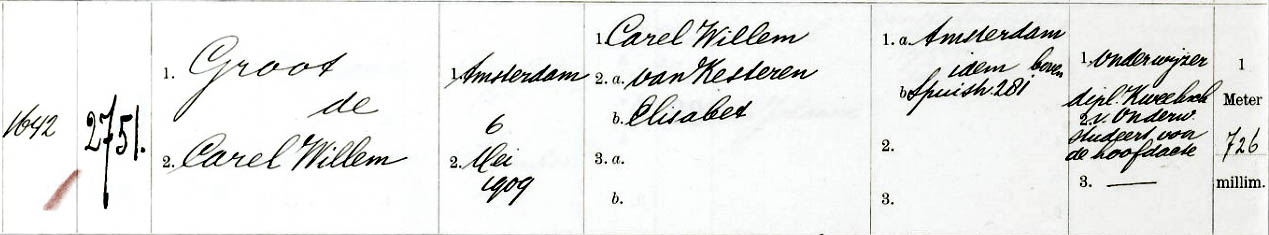 1642
2751.
1. Groot
de
2. Carel Willem
1. Amsterdam
6
2. Mei
1909
1. Carel Willem
2. a. van Kesteren
b. Elisabet
3. a.
b.
1. a. Amsterdam
idem boven
b. Spuistr. 281
2.
3.
1. onderwijzer
dipl. Kweeksch
2. v. Onderw.
studeert voor
de hoofdacte
3. —
1
Meter
726
millim.